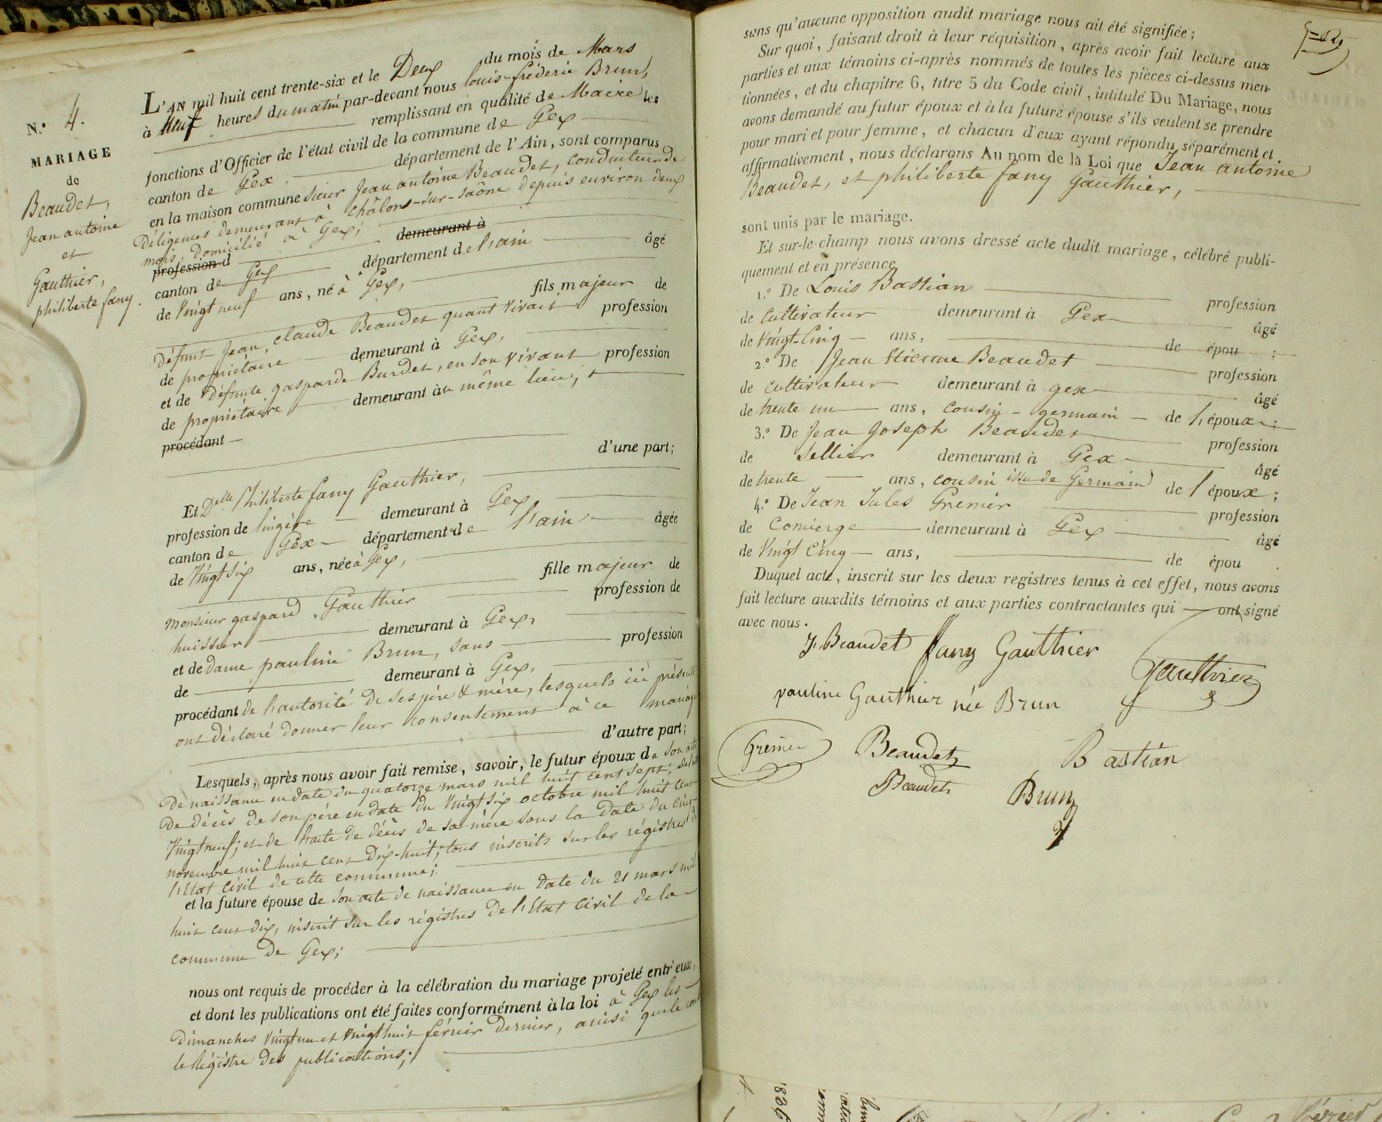 N.º 4.
MARIAGE
de
Beaudet,
Jean antoine
et
Gauthier,
philiberte fany.
L'AN mil huit cent trente-six et le Deux du mois de Mars
à Neuf heures du matin par-devant nous Louis-fréderic Brun,
remplissant en qualité de Maire les
fonctions d'Officier de l'état civil de la commune de Gex
canton de Gex département de l'Ain, sont comparus
en la maison commune Sieur Jean antoine Beaudet, conducteur de
Diligences demeurant à Châlons-sur-saône depuis environ deux
mois, domicilié à Gex; demeurant à
profession d
canton de Gex département de Lain âgé
de Vingt neuf ans, né à Gex,
fils majeur de
défunt Jean claude Beaudet quant vivait profession
de propriétaire demeurant à Gex,
et de Défunte gasparde Burdet, en son vivant profession
de propriétaire demeurant au même lieu,
procédant
d'une part;
Et Delle Philiberte fany Gauthier,
profession de lingère demeurant à Gex
canton de Gex département de l'ain âgée
de Vingt six ans, née à Gex,
fille majeur de
monsieur gaspard Gauthier profession de
huissier demeurant à Gex,
et de dame pauline Brun, sans profession
de demeurant à Gex,
procédant de l'autorité de ses père & mère, lesquels ici présents
ont déclaré donner leur consentement à ce mariage
d'autre part;
Lesquels, après nous avoir fait remise, savoir, le futur époux de son acte
De naissance en date du quatorze mars mil huit cent sept;
De décès de son père en date du Vingt six octobre mil huit cent
Vingt neuf; et de l'acte de décès de sa mère sous la date du
novembre mil huit cent Dix-huit; tous inscrits sur les régistres de
l'Etat civil de cette commune;
et la future épouse de son acte de naissance en date du 21 mars mil
huit cent dix, inscrit sur les régistres de l'Etat civil de la
commune de Gex;
nous ont requis de procéder à la célébration du mariage projeté entr'eux,
et dont les publications ont été faites conformément à la loi à Gex les
dimanches Vingt un et Vingt huit février dernier, ainsi que le
le Régistre des publications;
sans qu'aucune opposition audit mariage nous ait été signifiée;
Sur quoi, faisant droit à leur réquisition, après avoir fait lecture aux
parties et aux témoins ci-après nommés de toutes les pièces ci-dessus men-
tionnées, et du chapitre 6, titre 5 du Code civil, intitulé Du Mariage, nous
avons demandé au futur époux et à la future épouse s'ils veulent se prendre
pour mari et pour femme, et chacun d'eux ayant répondu séparément et
affirmativement, nous déclarons Au nom de la Loi que Jean antoine
Beaudet, et philiberte fany Gauthier,
sont unis par le mariage.
Et sur-le-champ nous avons dressé acte dudit mariage, célébré publi-
quement et en présence
1.º De Louis Bastian profession
de Cultivateur demeurant à Gex âgé
de Vingt-Cinq ans, de épou ;
2.º De Jean Etienne Beaudet profession
de cultivateur demeurant à gex âgé
de trente un ans, cousin-germain de l'époux;
3.º De Jean Joseph Beaudet profession
de Sellier demeurant à Gex âgé
de trente ans, cousin issu de Germain de l'époux;
4.º De Jean Jules Grenier profession
de Concierge demeurant à Gex âgé
de Vingt Cinq ans, de épou
Duquel acte, inscrit sur les deux registres tenus à cet effet, nous avons
fait lecture auxdits témoins et aux parties contractantes qui ont signé
avec nous.
J. Beaudet fany Gauthier
Gauthier
pauline Gauthier née Brun
Grenier Beaudet Bastian
Beaudet Brun
1836
février